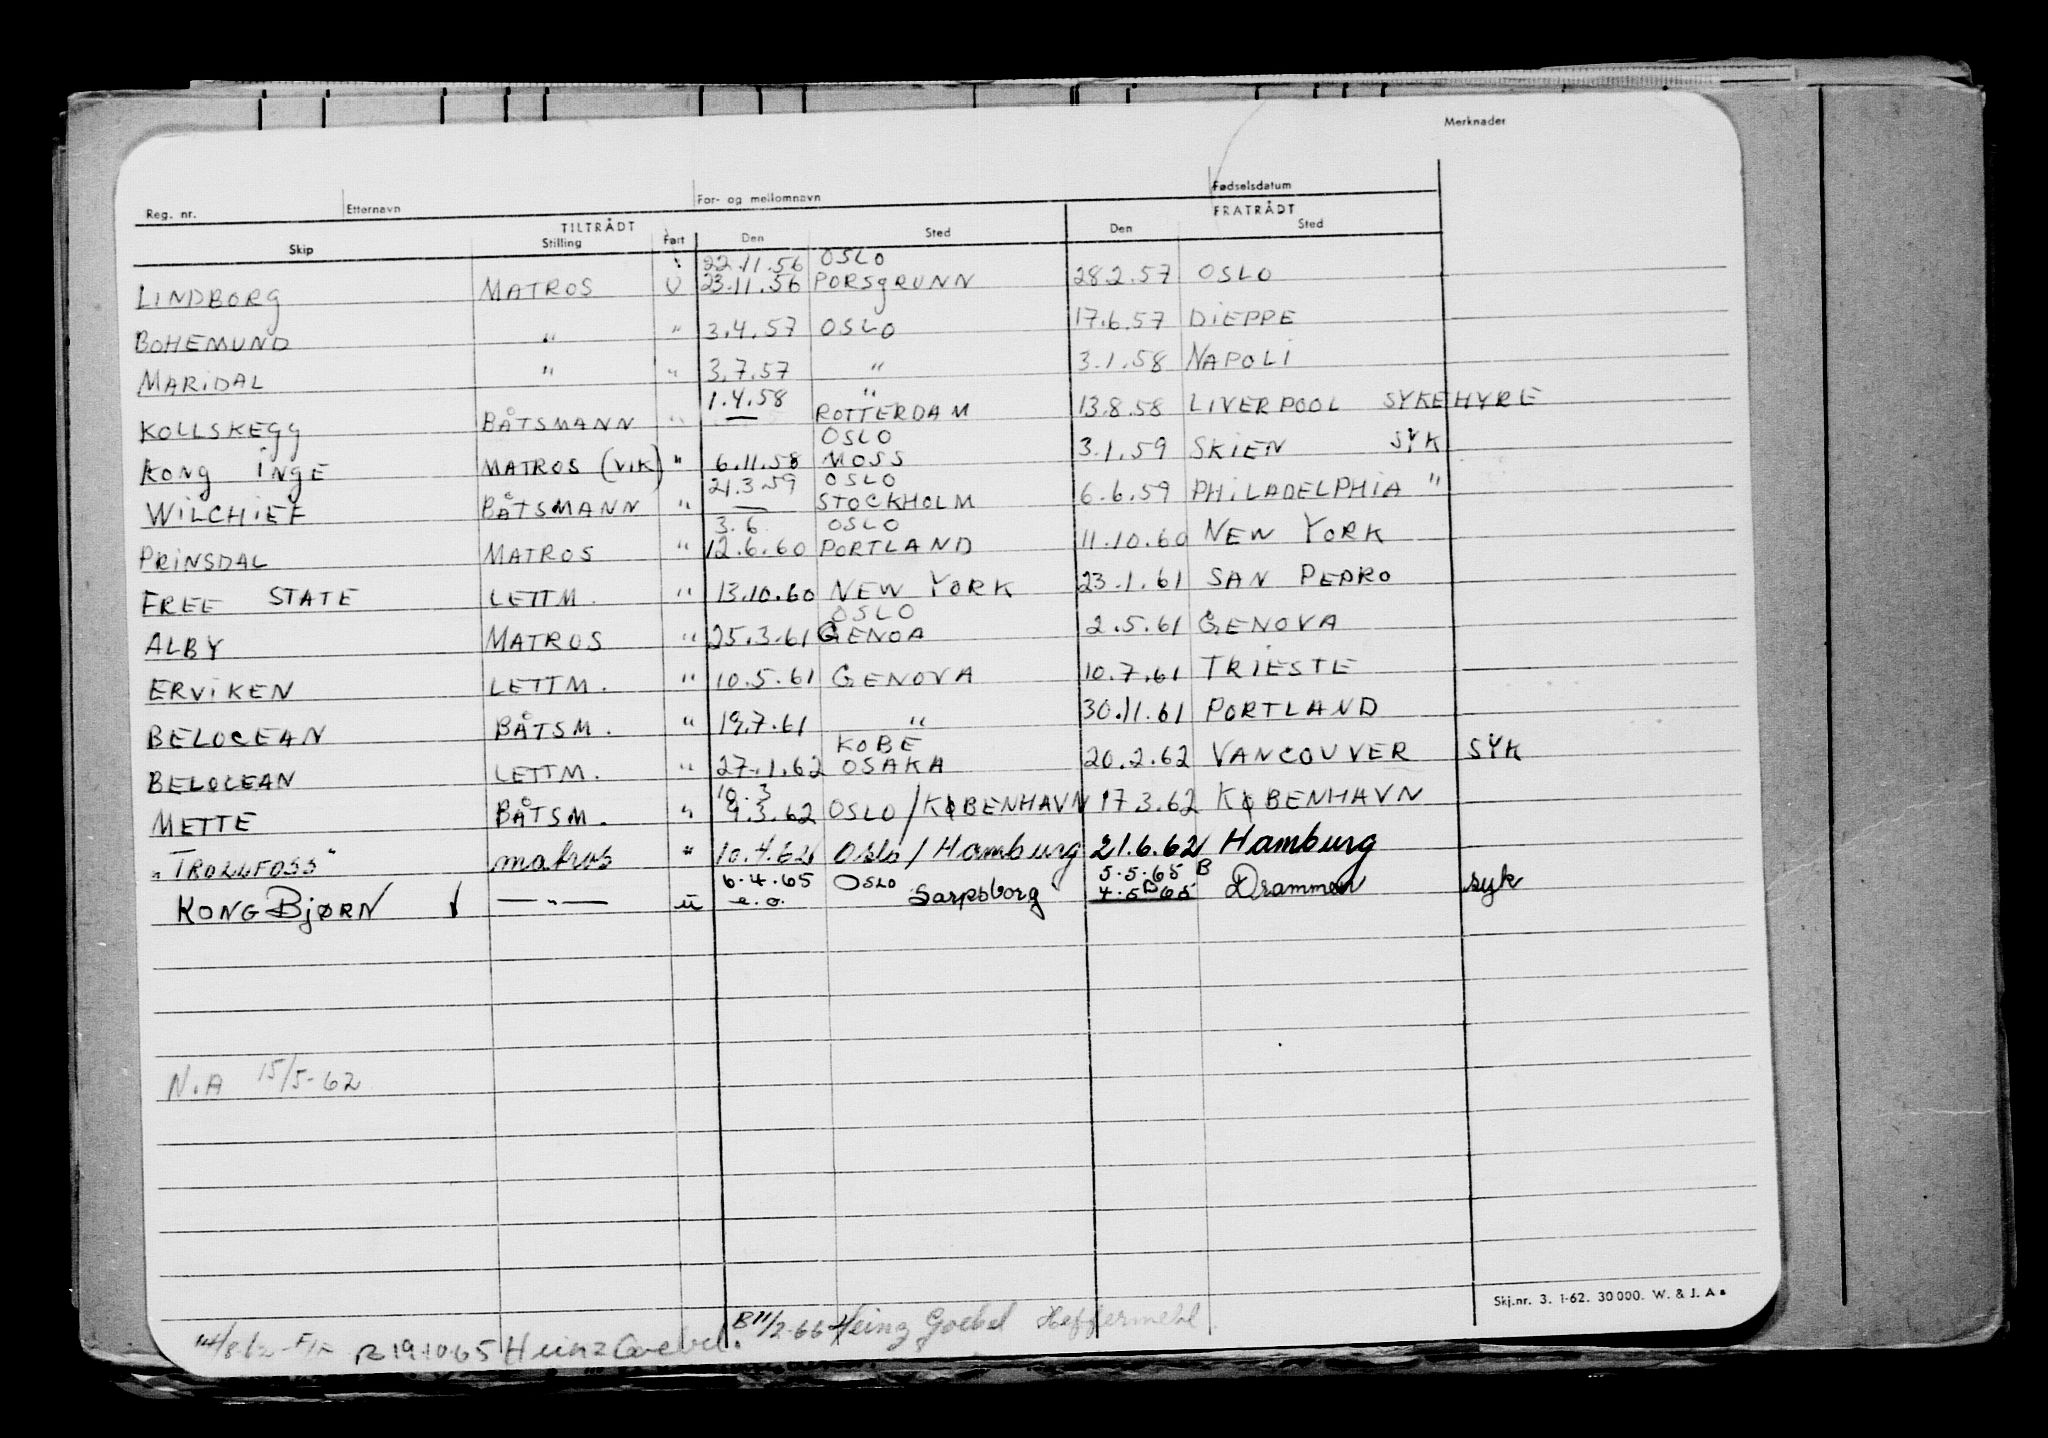 Merknader
Reg. nr. Etternavn For- og mellomnavn Fødselsdatum
TILTRÅDT FRATRÅDT
Skip Stilling Ført Den Sted Den Sted
22.11.56 OSLO
LINDBORG MATROS U 23.11.56 PORSGRUNN 28.2.57 OSLO
BOHEMUND " " 3.4.57 OSLO 17.6.57 DIEPPE
MARIDAL " " 3.7.57 " 3.1.58 NAPOLI
1.4.58 "
KOLLSKEGG BÅTSMANN " — ROTTERDAM 13.8.58 LIVERPOOL SYKEHYRE
OSLO
KONG INGE MATROS (VIK) " 6.11.58 MOSS 3.1.59 SKIEN SYK
21.3.59 OSLO
WILCHIEF BÅTSMANN " — STOCKHOLM 6.6.59 PHILADELPHIA "
3.6. OSLO
PRINSDAL MATROS " 12.6.60 PORTLAND 11.10.60 NEW YORK
FREE STATE LETTM. " 13.10.60 NEW YORK 23.1.61 SAN PEDRO
OSLO
ALBY MATROS " 25.3.61 GENOA 2.5.61 GENOVA
ERVIKEN LETTM. " 10.5.61 GENOVA 10.7.61 TRIESTE
BELOCEAN BÅTSM. " 19.7.61 " 30.11.61 PORTLAND
KOBE
BELOCEAN LETTM. " 27.1.62 OSAKA 20.2.62 VANCOUVER SYK
10.3
METTE BÅTSM. " 9.3.62 OSLO/KØBENHAVN 17.3.62 KØBENHAVN
"TROLLFOSS" matros " 10.4.62 Oslo/Hamburg 21.6.62 Hamburg
6.4.65 OSLO 5.5.65 B
KONG BJØRN — " — u e.o. Sarpsborg 4.5.65 Drammen syk
N.A 15/5-62
Skj.nr. 3. 1-62. 30 000. W. & J. A s
R 19.10.65 Heinz Goebel. B 11/2-66 Heinz Goebel Heffermehl.